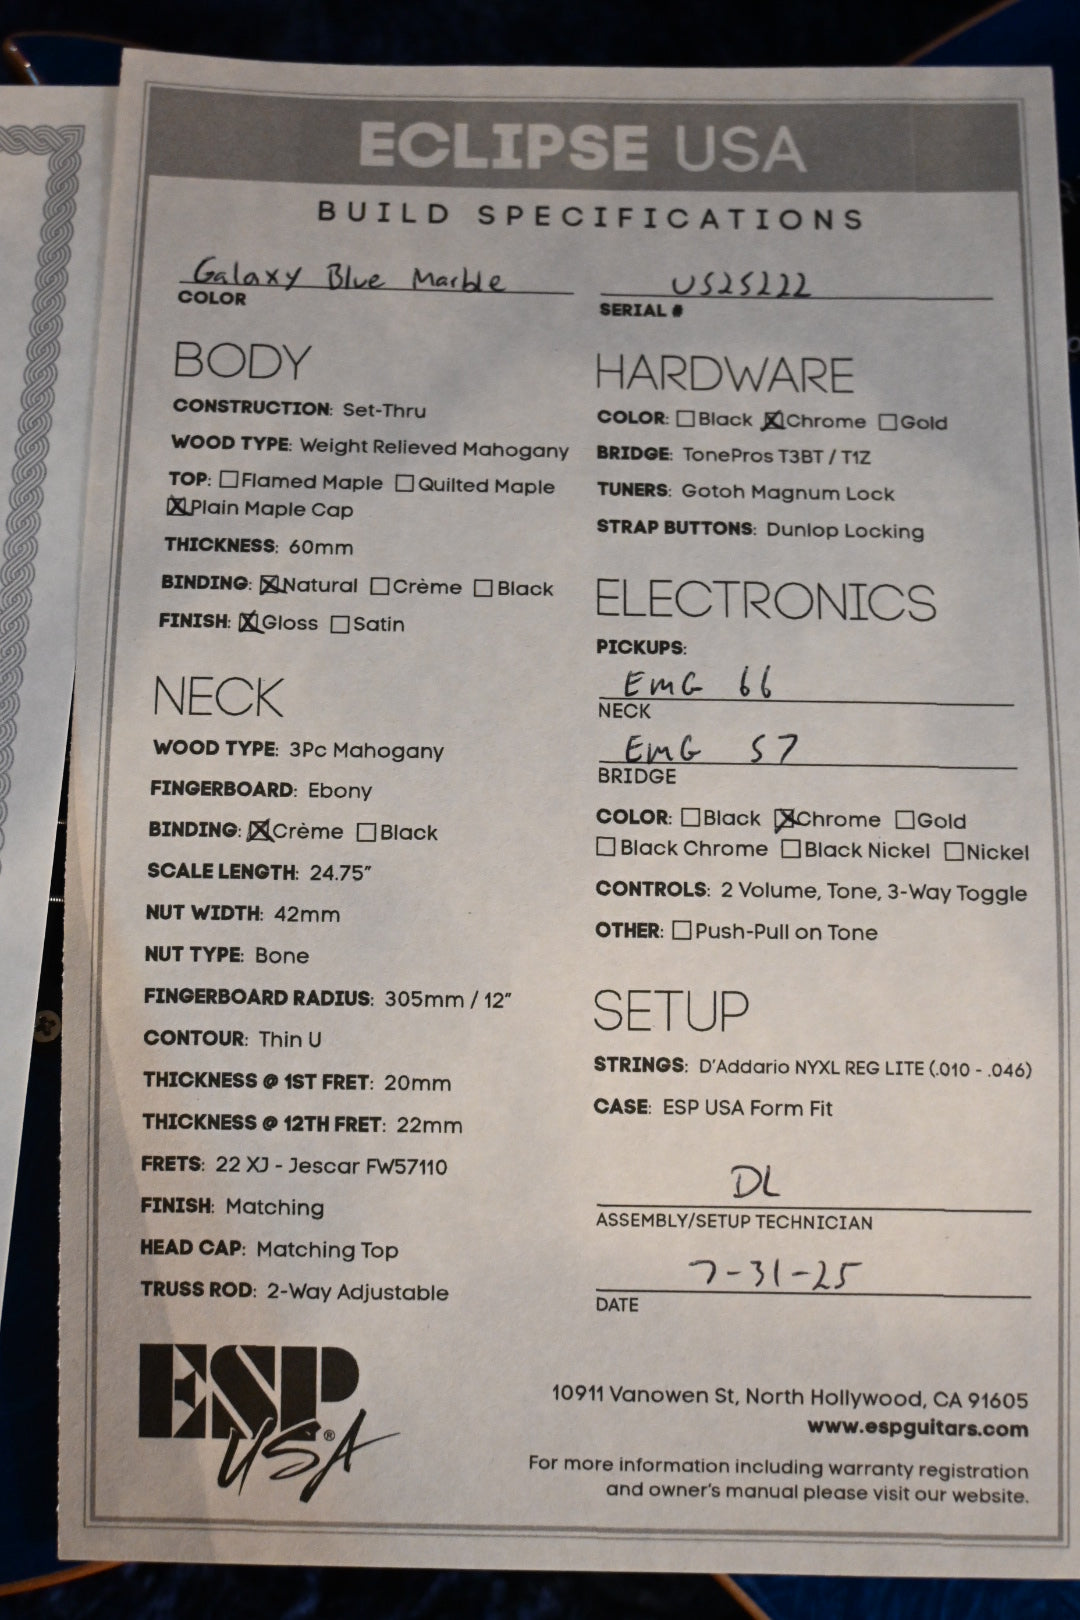 ECLIPSE USA
BUILD SPECIFICATIONS
Galaxy Blue Marble
COLOR
US25222
SERIAL #
BODY
CONSTRUCTION: Set-Thru
WOOD TYPE: Weight Relieved Mahogany
TOP: ☐Flamed Maple ☐Quilted Maple
☒Plain Maple Cap
THICKNESS: 60mm
BINDING: ☒Natural ☐Crème ☐Black
FINISH: ☒Gloss ☐Satin
NECK
WOOD TYPE: 3Pc Mahogany
FINGERBOARD: Ebony
BINDING: ☒Crème ☐Black
SCALE LENGTH: 24.75”
NUT WIDTH: 42mm
NUT TYPE: Bone
FINGERBOARD RADIUS: 305mm / 12”
CONTOUR: Thin U
THICKNESS @ 1ST FRET: 20mm
THICKNESS @ 12TH FRET: 22mm
FRETS: 22 XJ - Jescar FW57110
FINISH: Matching
HEAD CAP: Matching Top
TRUSS ROD: 2-Way Adjustable
HARDWARE
COLOR: ☐Black ☒Chrome ☐Gold
BRIDGE: TonePros T3BT / T1Z
TUNERS: Gotoh Magnum Lock
STRAP BUTTONS: Dunlop Locking
ELECTRONICS
PICKUPS:
EMG 66
NECK
EMG 57
BRIDGE
COLOR: ☐Black ☒Chrome ☐Gold
☐Black Chrome ☐Black Nickel ☐Nickel
CONTROLS: 2 Volume, Tone, 3-Way Toggle
OTHER: ☐Push-Pull on Tone
SETUP
STRINGS: D'Addario NYXL REG LITE (.010 - .046)
CASE: ESP USA Form Fit
DL
ASSEMBLY/SETUP TECHNICIAN
7-31-25
DATE
ESP
USA®
10911 Vanowen St, North Hollywood, CA 91605
www.espguitars.com
For more information including warranty registration
and owner's manual please visit our website.